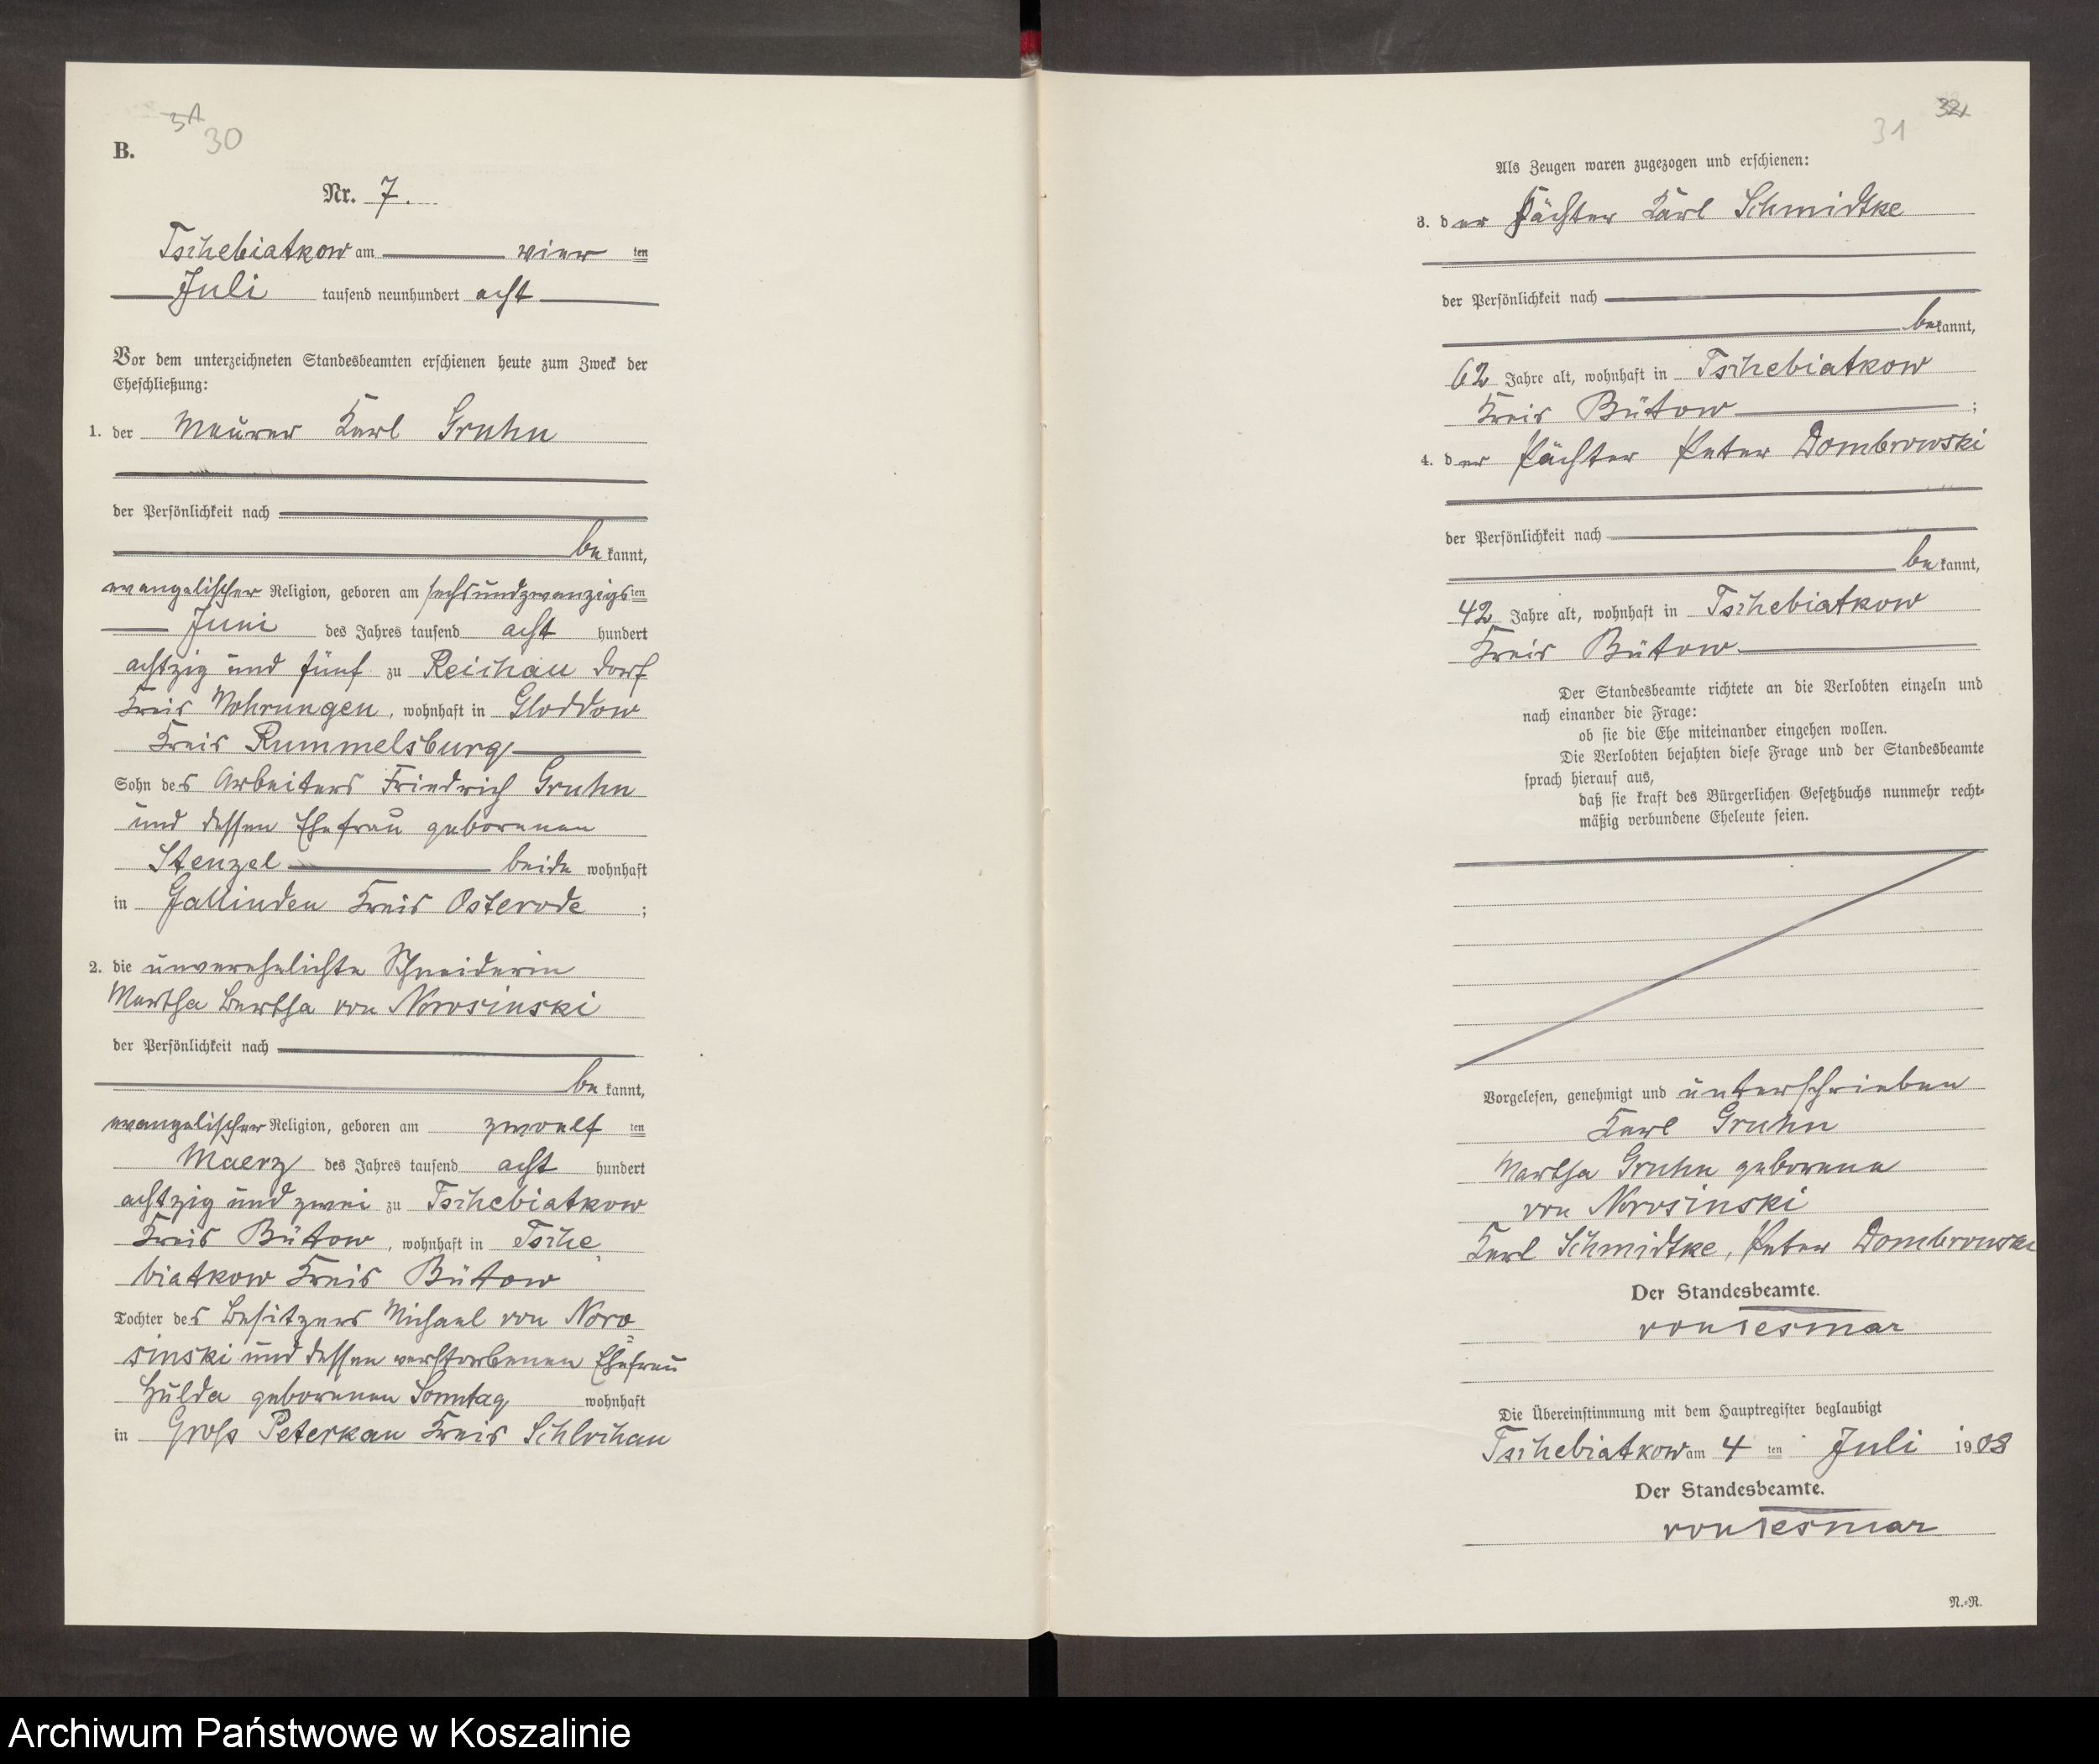 31 30
B.
Nr. 7.
Tschebiatkow am vier ten
Juli tausend neunhundert acht
Vor dem unterzeichneten Standesbeamten erschienen heute zum Zweck der
Eheschließung:
1. der Maurer Karl Gruhn
der Persönlichkeit nach
be kannt,
evangelischer Religion, geboren am sechsundzwanzigs ten
Juni des Jahres tausend acht hundert
achtzig und fünf zu Reichau Dorf
Kreis Mohrungen, wohnhaft in Gloddow
Kreis Rummelsburg
Sohn des Arbeiters Friedrich Gruhn
und dessen Ehefrau geborenen
Stenzel beide wohnhaft
in Gallinden Kreis Osterode ;
2. die unverehelichte Schneiderin
Martha Bertha von Norosinski
der Persönlichkeit nach
be kannt,
evangelischer Religion, geboren am zwoelf ten
Maerz des Jahres tausend acht hundert
achtzig und zwei zu Tschebiatkow
Kreis Bütow, wohnhaft in Tsche
biatkow Kreis Bütow
Tochter des Besitzers Michael von Noro
sinski und dessen verstorbenen Ehefrau
Hulda geborenen Sonntag wohnhaft
in Gross Peterkau Kreis Schlochau
32 31
Als Zeugen waren zugezogen und erschienen:
3. der Pächter Karl Schmidtke
der Persönlichkeit nach
be kannt,
62 Jahre alt, wohnhaft in Tschebiatkow
Kreis Bütow ;
4. der Pächter Peter Dombrowski
der Persönlichkeit nach
be kannt,
42 Jahre alt, wohnhaft in Tschebiatkow
Kreis Bütow
Der Standesbeamte richtete an die Verlobten einzeln und
nach einander die Frage:
ob sie die Ehe miteinander eingehen wollen.
Die Verlobten bejahten diese Frage und der Standesbeamte
sprach hierauf aus,
daß sie kraft des Bürgerlichen Gesetzbuchs nunmehr recht-
mäßig verbundene Eheleute seien.
Vorgelesen, genehmigt und unterschrieben
Karl Gruhn
Martha Gruhn geborene
von Norosinski
Karl Schmidtke, Peter Dombrowski
Der Standesbeamte.
von Tesmar
Die Übereinstimmung mit dem Hauptregister beglaubigt
Tschebiatkow am 4 ten Juli 1908
Der Standesbeamte.
von Tesmar
N.-R.
Archiwum Państwowe w Koszalinie